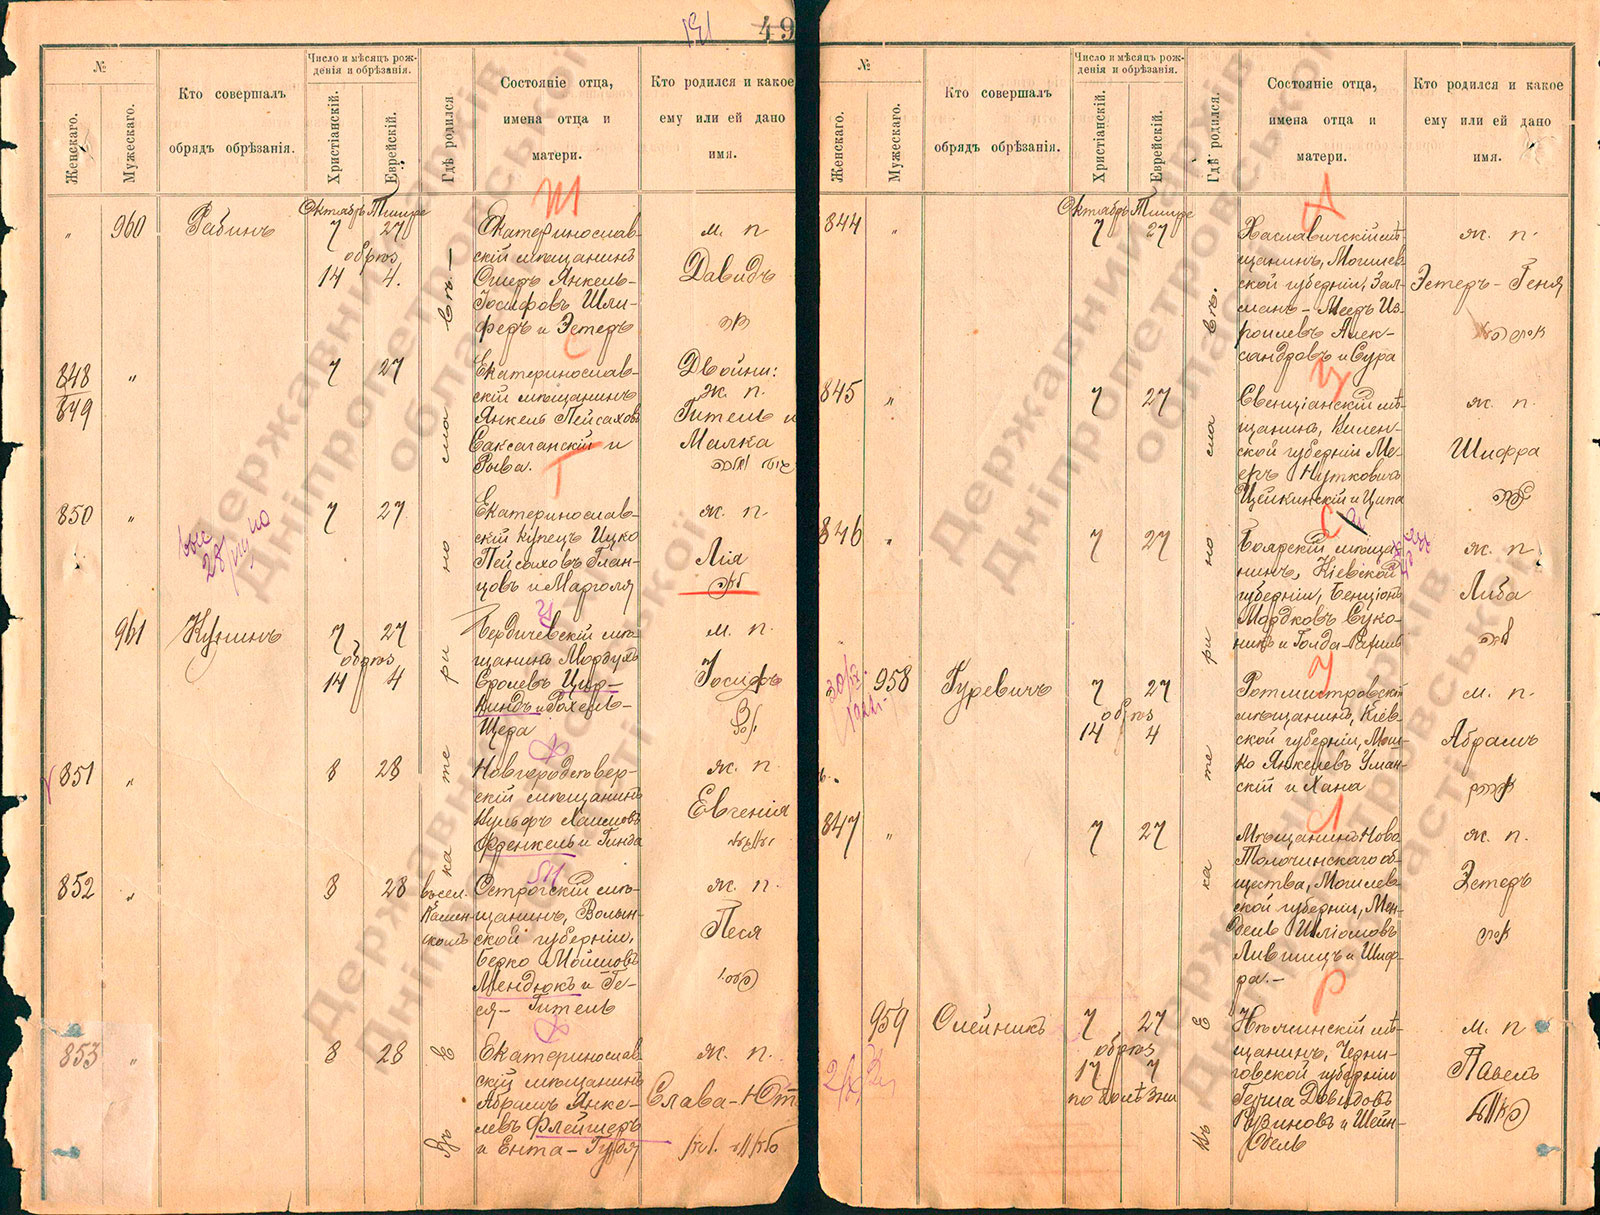 191
49
№
Женскаго.
Мужескаго.
Кто совершалъ
обрядъ обрѣзанія.
Число и мѣсяцъ рож-
денія и обрѣзанія.
Христіанскій.
Еврейскій.
Гдѣ родился
Состояніе отца,
имена отца и
матери.
Кто родился и какое
ему или ей дано
имя.
Октябрь Тишре
" 960 Рабинъ 7 27
обрѣз
14 4.
Екатеринослав-
скій мѣщанинъ
Ошеръ Янкель-
Іосифовъ Шли-
феръ и Эстеръ
м. п.
Давидъ
848
849
" 7 27
Екатеринослав-
скій мѣщанинъ
Янкель Пейсаховъ
Саксаганскій и
Рыва.
Двойни:
ж. п.
Гитель и
Малка
850 " 7 27
Екатеринослав-
скій купецъ Ицко
Пейсаховъ Глан-
цовъ и Марголя
ж. п.
Лія
961 Кунинъ 7 27
обрѣз
14 4
Бердичевскій мѣ-
щанинъ Мордухъ
Сролевъ Цир-
киндъ и Рохель-
Щера
м. п.
Іосифъ
851 " 8 28
Новгородсѣвер-
скій мѣщанинъ
Вульфъ Хаимовъ
Френкель и Гинда
ж. п.
Евгенія
852 " 8 28
въ сел.
Камен-
скомъ
Острогскій мѣ-
щанинъ, Волын-
ской губерніи,
Берко Мошковъ
Мендюкъ и Ге-
ся- Гитель
ж. п.
Песя
853 " 8 28
Екатеринослав
скій мѣщанинъ
Абрамъ Янке-
левъ Флейшеръ
и Ента-Гудя
ж. п.
Слава-Ют
Въ Екатеринославѣ.-
№
Женскаго.
Мужескаго.
Кто совершалъ
обрядъ обрѣзанія.
Число и мѣсяцъ рож-
денія и обрѣзанія.
Христіанскій.
Еврейскій.
Гдѣ родился.
Состояніе отца,
имена отца и
матери.
Кто родился и какое
ему или ей дано
имя.
Октябрь Тишре
844 " 7 27
Хаславичскій мѣ-
щанинъ, Могилев
ской губерніи, Зал-
манъ-Мееръ Из-
роилевъ Алек-
сандровъ и Сура
ж. п.
Эстеръ-Геня
845 " 7 27
Свенціанскій мѣ-
щанинъ, Вилен-
ской губерніи Ме-
еръ Нутковичъ
Цейкинскій и Ципа
ж. п.
Шифра
846 " 7 27
Боярскій мѣща-
нинъ, Кіевской
губерніи, Бенціонъ
Мордковъ Суко-
никъ и Голда-Рахиль
ж. п.
Либа
958 Гуревичъ 7 27
обрѣз
14 4
Ротмистровскій
мѣщанинъ, Кіев-
ской губерніи, Мош-
ко Янкелевъ Уман-
скій и Хана
м. п.
Абрамъ
847 " 7 27
Мѣщанинъ Ново
Толочинскаго об-
щества, Могилев
ской губерніи, Мен-
дель Шліомовъ
Лившицъ и Шиф-
ра.-
ж. п.
Эстеръ
959 Олейникъ 7 27
обрѣз
17 7
по болѣзни
Нѣжинскій мѣ-
щанинъ, Черни-
говской губерніи
Герша Довидовъ
Рувиновъ и Шейн-
дель
м. п
Павелъ
Въ Екатеринославѣ.
Державний архів
Дніпропетровської
області